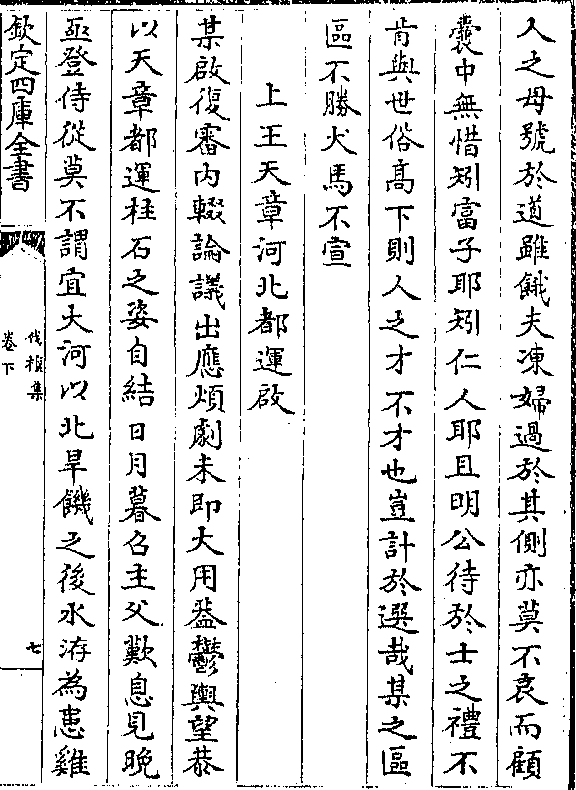 人之母號於道雖餓夫凍婦過於其側亦莫不哀而顧
囊中無惜矧富子耶矧仁人耶且明公待於士之禮不
肯與世俗高下則人之才不才也豈計於選哉某之區
區不勝犬馬不宣
上王天章河北都運啟
某啟復審內輟論議出應煩劇未即大用益鬱輿望恭
以天章都運柱石之姿自結日月暮召主父歎息見晚
亟登侍從莫不謂宜大河以北旱饑之後水洊為患雞
欽定四庫全書
伐檀集
卷下
七